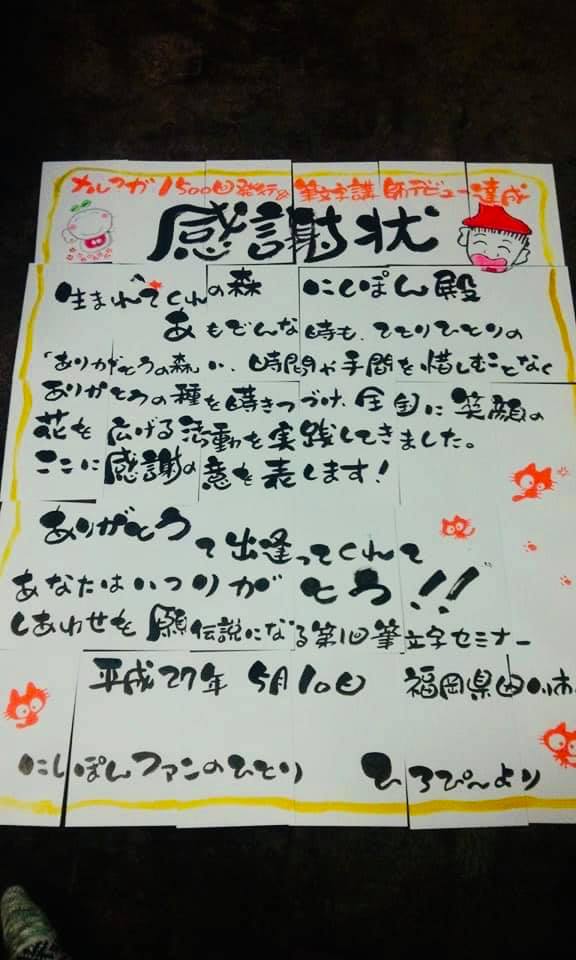 メルマガ1500回発行&筆文字講師デビュー達成
感謝状
生まれてくれの森 にしぽん殿
あもでんな時も、ひとりひとりの
「ありがとうの森」い、時間や手間を惜しむことなく
ありがとうの種を蒔きつづけ、全国に笑顔の
花を広げる活動を実践してきました。
ここに感謝の意を表します!
ありがとうて出逢ってくれて
あなたはいつりがとう!!
しあわせを願伝説になる第1回筆文字セミナー
平成27年5月10日 福岡県田川市
にしぽんファンのひとり ひろぴーより